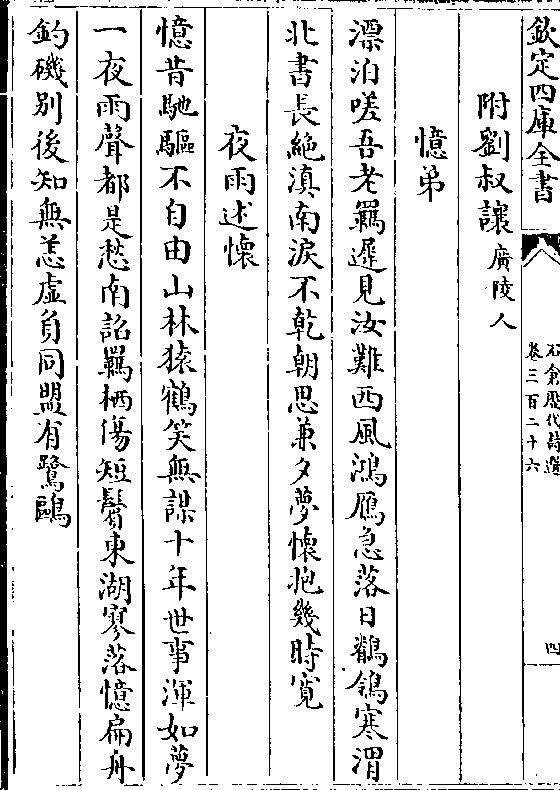 欽定四庫全書
石倉歷代詩選
卷三百二十六
四
附劉叔讓廣陵人
憶弟
漂泊嗟吾老羈遲見汝難西風鴻鴈急落日鶺鴒寒渭
北書長絶滇南淚不乾朝思兼夕夢懐抱幾時寛
夜雨述懐
憶昔馳驅不自由山林猿鶴笑無謀十年世事渾如夢
一夜雨聲都是愁南詔羈栖傷短鬢東湖寥落憶扁舟
釣磯别後知無恙虚負同盟有鷺鷗